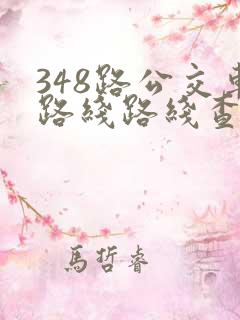 348路公交车
路线路线查
马哲睿